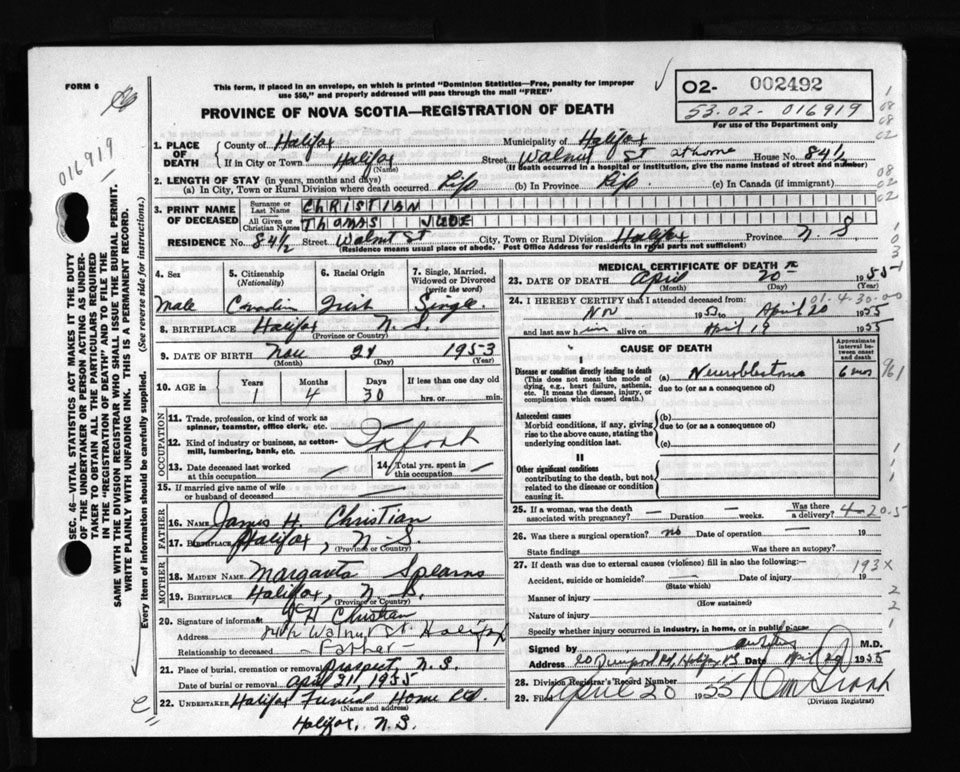 FORM 6
This form, if placed in an envelope, on which is printed "Dominion Statistics—Free, penalty for improper
use $50," and properly addressed will pass through the mail "FREE"
O2- 002492
53.02-016919
For use of the Department only
PROVINCE OF NOVA SCOTIA—REGISTRATION OF DEATH
016919
1. PLACE OF DEATH
County of Halifax Municipality of Halifax
If in City or Town Halifax (Name) Street Walnut St at home House No. 84½
(If death occurred in a hospital or institution, give the name instead of street and number)
2. LENGTH OF STAY (in years, months and days)
(a) In City, Town or Rural Division where death occurred Life (b) In Province Life (c) In Canada (if immigrant)
3. PRINT NAME OF DECEASED
Surname or Last Name CHRISTIAN
All Given or Christian Names THOMAS JUDE
RESIDENCE No. 84½ Street Walnut St City, Town or Rural Division Halifax Province N.S.
(Residence means usual place of abode. Post Office Address for residents in rural parts not sufficient)
4. Sex Male
5. Citizenship (Nationality) Canadian
6. Racial Origin Irish
7. Single, Married, Widowed or Divorced (write the word) Single.
8. BIRTHPLACE Halifax N.S. (Province or Country)
9. DATE OF BIRTH Nov (Month) 21 (Day) 1953 (Year)
10. AGE in Years 1 Months 4 Days 30 If less than one day old hrs. or min.
OCCUPATION
11. Trade, profession, or kind of work as spinner, teamster, office clerk, etc.
12. Kind of industry or business, as cotton-mill, lumbering, bank, etc.
13. Date deceased last worked at this occupation —
14. Total yrs. spent in this occupation —
15. If married give name of wife or husband of deceased —
FATHER
16. NAME James H. Christian
17. BIRTHPLACE Halifax, N.S. (Province or Country)
MOTHER
18. MAIDEN NAME Margareta Spearns
19. BIRTHPLACE Halifax, N.S. (Province or Country)
20. Signature of informant J H Christian
Address 84½ Walnut St. Halifax
Relationship to deceased - Father -
21. Place of burial, cremation or removal Prospect, N.S.
Date of burial or removal April 21st 1955
22. UNDERTAKER Halifax Funeral Home Ltd.
(Name and address)
Halifax, N.S.
MEDICAL CERTIFICATE OF DEATH
23. DATE OF DEATH April (Month) 20th (Day) 1955
01-4-30-00
24. I HEREBY CERTIFY that I attended deceased from:
Nov 1953 to April 20 1955
and last saw him alive on April 19 1955
CAUSE OF DEATH
Approximate interval between onset and death
I
Disease or condition directly leading to death
(This does not mean the mode of dying, e.g., heart failure, asthenia, etc. It means the disease, injury, or complication which caused death.)
(a) Neuroblastoma 6 mos
due to (or as a consequence of)
Antecedent causes
Morbid conditions, if any, giving rise to the above cause, stating the underlying condition last.
(b)
due to (or as a consequence of)
(c)
II
Other significant conditions
contributing to the death, but not related to the disease or condition causing it.
25. If a woman, was the death associated with pregnancy? — Duration — weeks. Was there a delivery?
4-20-5
26. Was there a surgical operation? no Date of operation — 19
State findings Was there an autopsy?
27. If death was due to external causes (violence) fill in also the following:—
193X
Accident, suicide or homicide? (State which) Date of injury 19
Manner of injury (How sustained)
Nature of injury
Specify whether injury occurred in industry, in home, or in public place
Signed by M.D.
Address Halifax NS Date April 20 1955
28. Division Registrar's Record Number
29. Filed April 20 1955
(Division Registrar)
SEC. 46—VITAL STATISTICS ACT MAKES IT THE DUTY
OF THE UNDERTAKER OR PERSON ACTING AS UNDER-
TAKER TO OBTAIN ALL THE PARTICULARS REQUIRED
IN THE "REGISTRATION OF DEATH" AND TO FILE THE
SAME WITH THE DIVISION REGISTRAR WHO SHALL ISSUE THE BURIAL PERMIT.
WRITE PLAINLY WITH UNFADING INK. THIS IS A PERMANENT RECORD.
Every item of information should be carefully supplied. (See reverse side for instructions.)